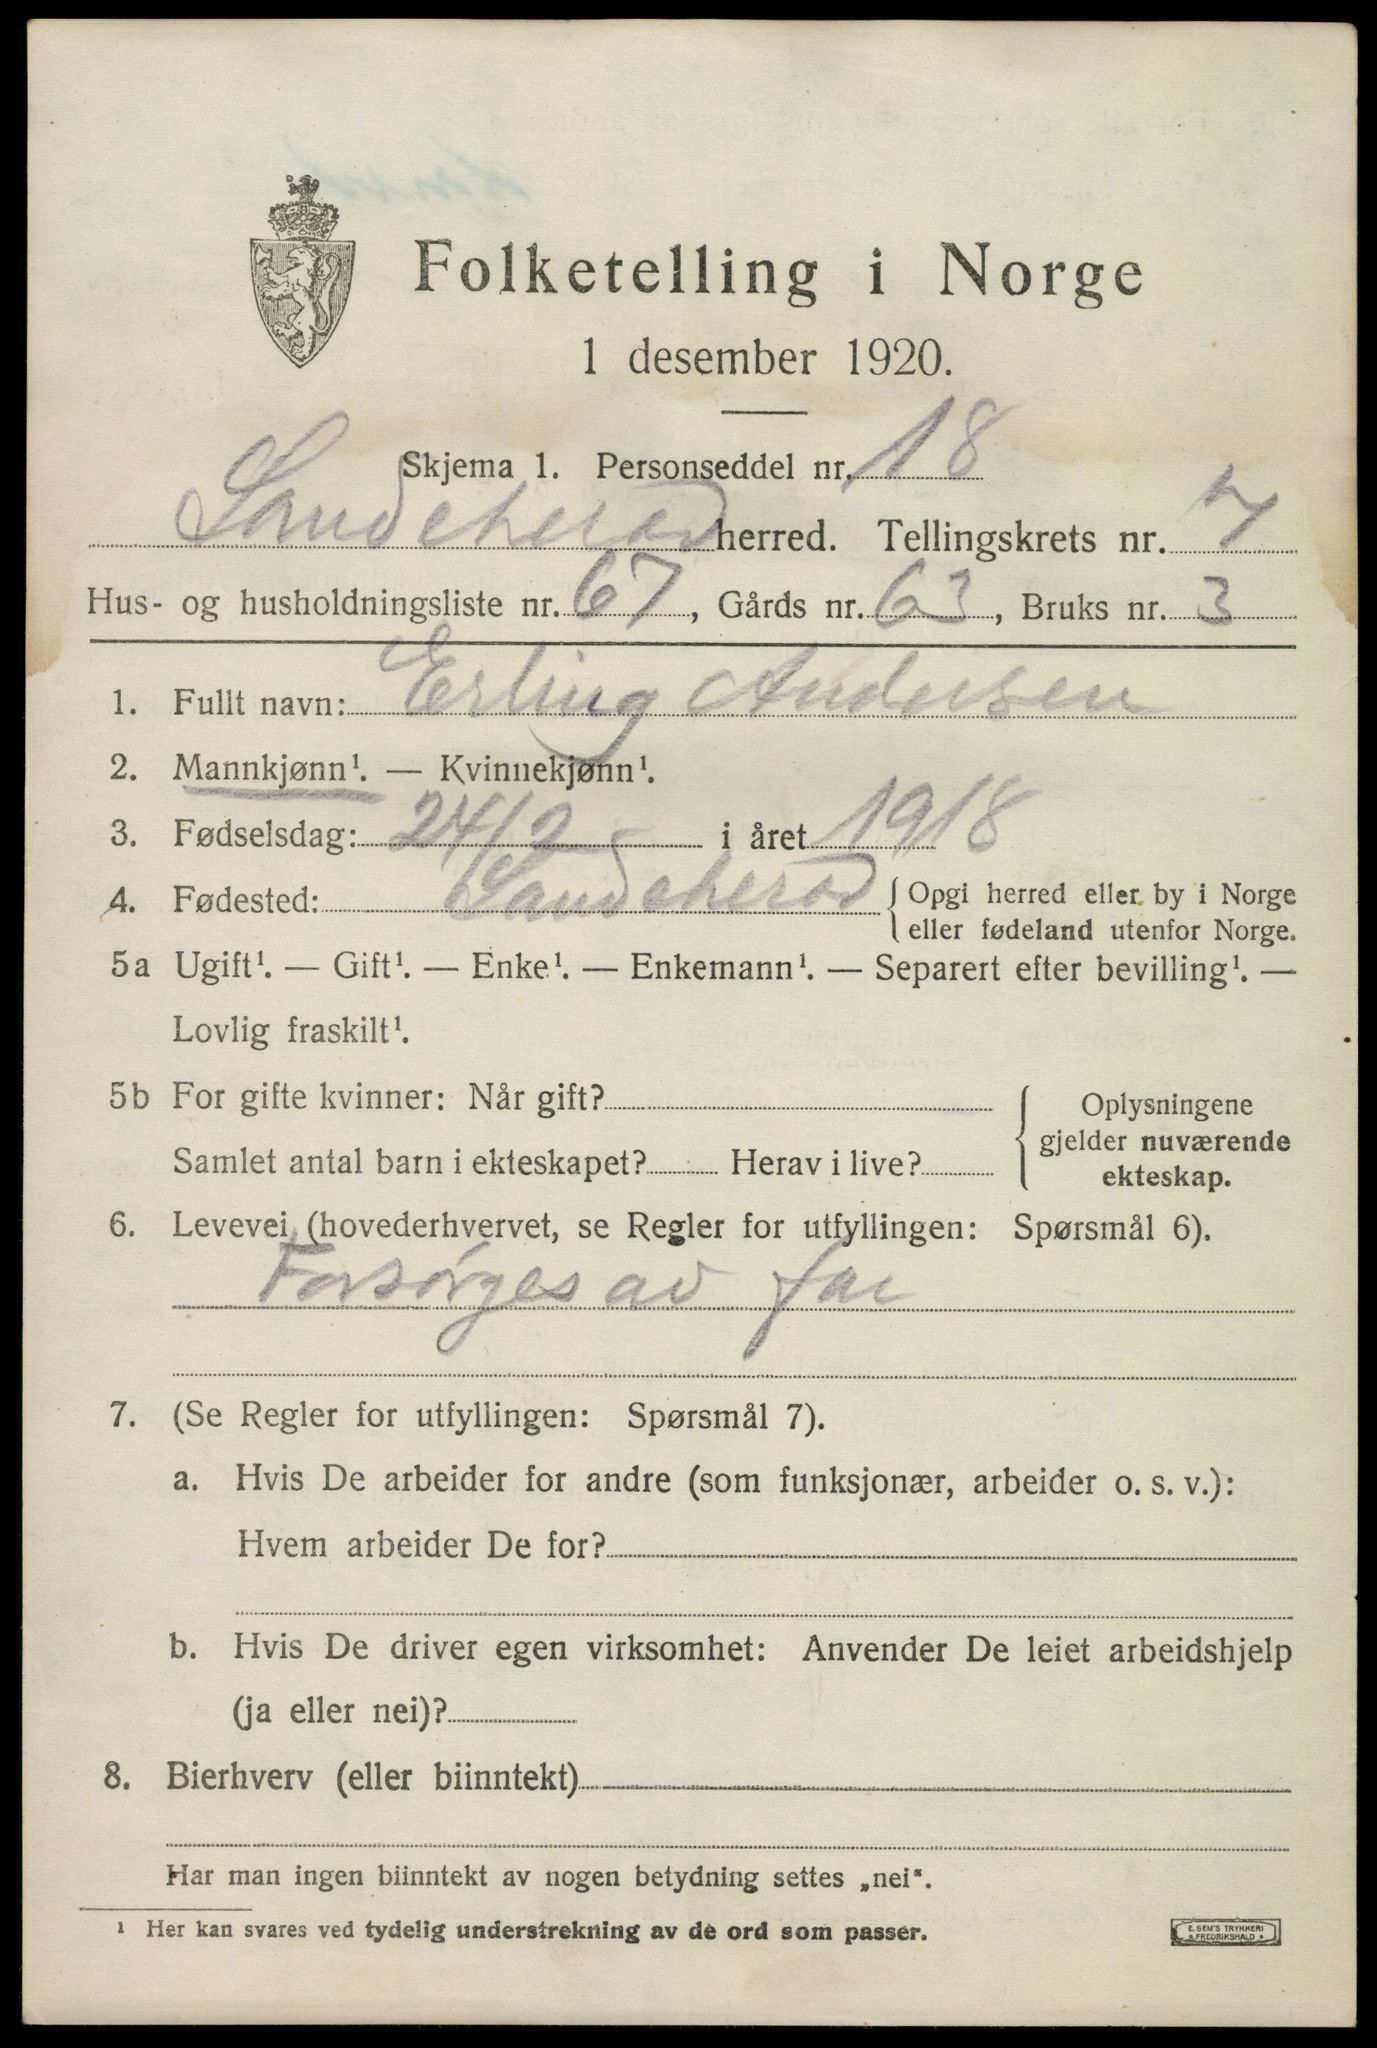 Folketelling i Norge
1 desember 1920.
Skjema 1. Personseddel nr. 18
Sandeherad herred. Tellingskrets nr. 7
Hus- og husholdningsliste nr. 67, Gårds nr. 63, Bruks nr. 3
1. Fullt navn: Erling Andersen
2. Mannkjønn¹. — Kvinnekjønn¹.
3. Fødselsdag: 24/2 - i året 1918
4. Fødested: Sandeherad { Opgi herred eller by i Norge
eller fødeland utenfor Norge.
5a Ugift¹. — Gift¹. — Enke¹. — Enkemann¹. — Separert efter bevilling¹. —
Lovlig fraskilt¹.
5b For gifte kvinner: Når gift? { Oplysningene
gjelder nuværende
Samlet antal barn i ekteskapet? Herav i live?
ekteskap.
6. Levevei (hovederhvervet, se Regler for utfyllingen: Spørsmål 6).
Forsørges av far
7. (Se Regler for utfyllingen: Spørsmål 7).
a. Hvis De arbeider for andre (som funksjonær, arbeider o. s. v.):
Hvem arbeider De for?
b. Hvis De driver egen virksomhet: Anvender De leiet arbeidshjelp
(ja eller nei)?
8. Bierhverv (eller biinntekt)
Har man ingen biinntekt av nogen betydning settes „nei“.
¹ Her kan svares ved tydelig understrekning av de ord som passer.
E. SEM'S TRYKKERI
FREDRIKSHALD